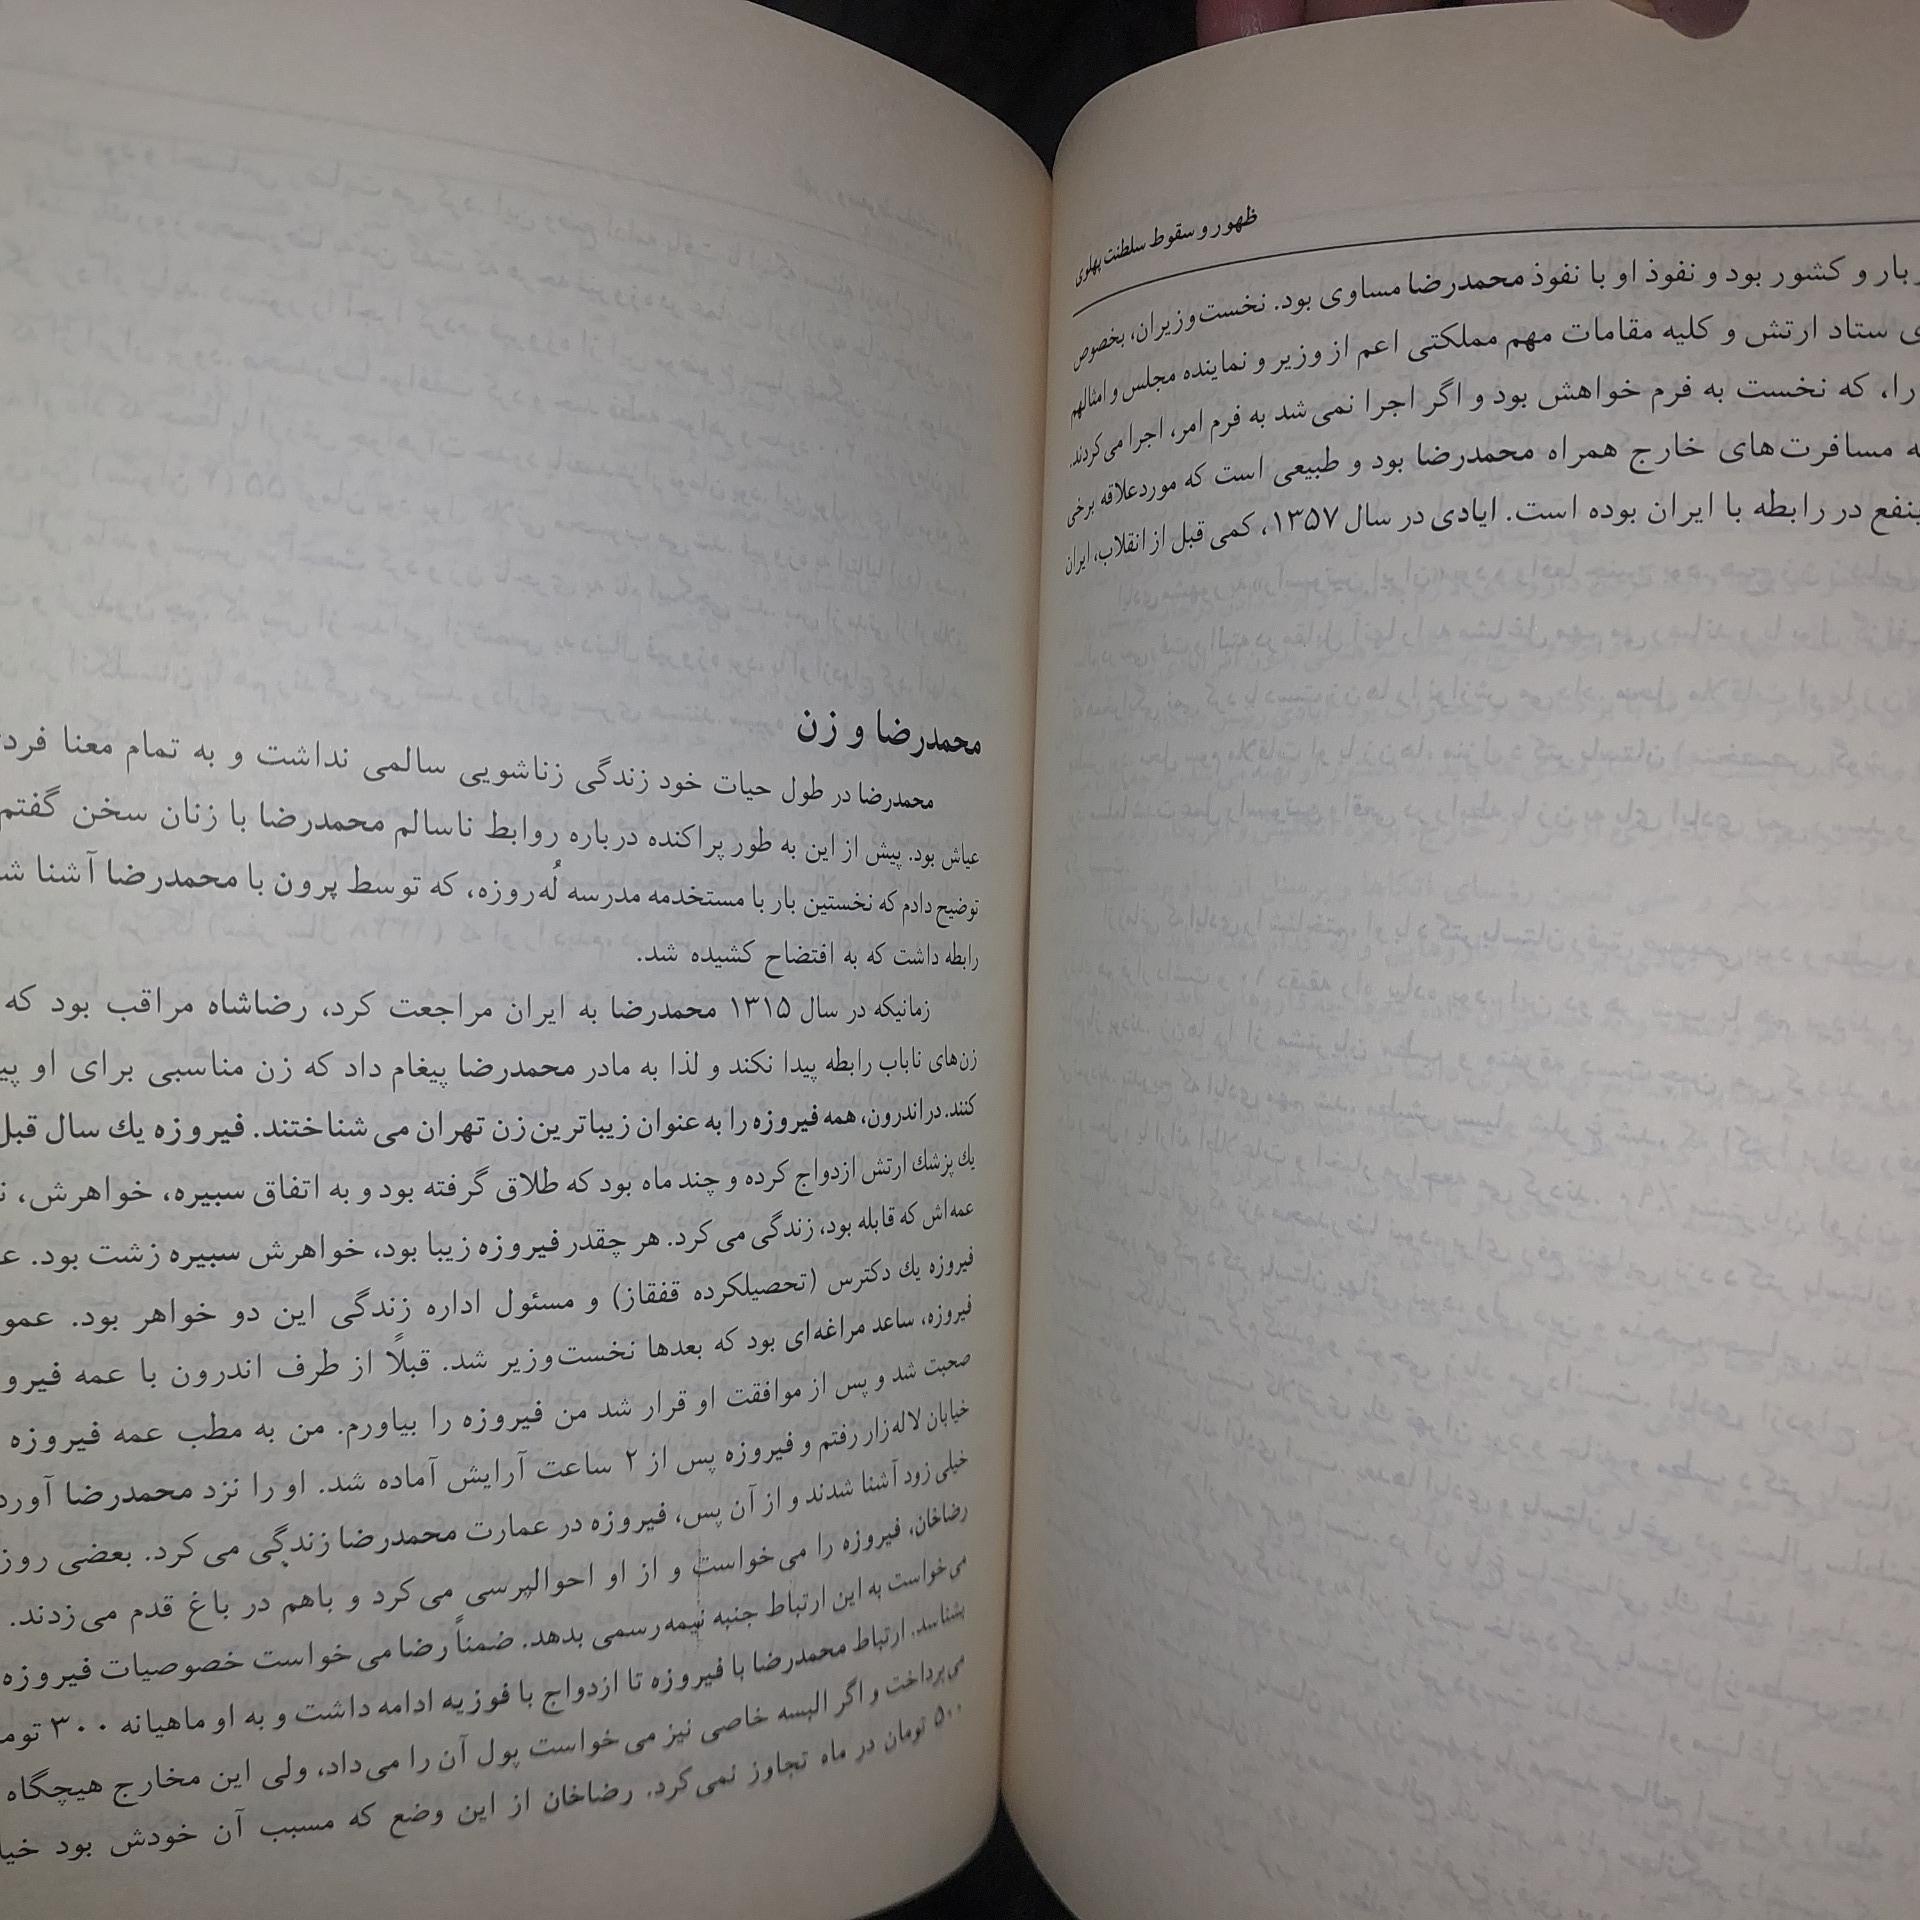 ظهور و سقوط سلطنت پهلوی
بار و کشور بود و نفوذ او با نفوذ محمدرضا مساوی بود. نخست‌وزیران، بخصوص
ستاد ارتش و کلیه مقامات مهم مملکتی اعم از وزیر و نماینده مجلس و امثالهم
را، که نخست به فرم خواهش بود و اگر اجرا نمی‌شد به فرم امر، اجرا می‌کردند.
مسافرت‌های خارج همراه محمدرضا بود و طبیعی است که موردعلاقه برخی
ینفع در رابطه با ایران بوده است. ایادی در سال ۱۳۵۷، کمی قبل از انقلاب، ایران
محمدرضا و زن
محمدرضا در طول حیات خود زندگی زناشویی سالمی نداشت و به تمام معنا فرد
عیاش بود. پیش از این به طور پراکنده درباره روابط ناسالم محمدرضا با زنان سخن گفتم
توضیح دادم که نخستین بار با مستخدمه مدرسه لُه‌روزه، که توسط پرون با محمدرضا آشنا شد
رابطه داشت که به افتضاح کشیده شد.
زمانیکه در سال ۱۳۱۵ محمدرضا به ایران مراجعت کرد، رضاشاه مراقب بود که
زن‌های ناباب رابطه پیدا نکند و لذا به مادر محمدرضا پیغام داد که زن مناسبی برای او
کنند. دراندرون، همه فیروزه را به عنوان زیباترین زن تهران می‌شناختند. فیروزه یك سال قبل
یك پزشك ارتش ازدواج کرده و چند ماه بود که طلاق گرفته بود و به اتفاق سبیره، خواهرش،
عمه‌اش که قابله بود، زندگی می‌کرد. هر چقدر فیروزه زیبا بود، خواهرش سبیره زشت بود.
فیروزه یك دکترس (تحصیلکرده قفقاز) و مسئول اداره زندگی این دو خواهر بود. عمو
فیروزه، ساعد مراغه‌ای بود که بعدها نخست‌وزیر شد. قبلاً از طرف اندرون با عمه
صحبت شد و پس از موافقت او قرار شد من فیروزه را بیاورم. من به مطب عمه فیروزه
خیابان لاله‌زار رفتم و فیروزه پس از ۲ ساعت آرایش آماده شد. او را نزد محمدرضا
خیلی زود آشنا شدند و از آن پس، فیروزه در عمارت محمدرضا زندگی می‌کرد. بعضی روز
رضاخان، فیروزه را می‌خواست و از او احوالپرسی می‌کرد و باهم در باغ قدم می‌زدند.
می‌خواست به این ارتباط جنبه نیمه‌رسمی بدهد. ضمناً رضا می‌خواست خصوصیات فیروزه
بشناسد. ارتباط محمدرضا با فیروزه تا ازدواج با فوزیه ادامه داشت و به او ماهیانه ۳۰۰
می‌پرداخت و اگر البسه خاصی نیز می‌خواست پول آن را می‌داد، ولی این مخارج هیچگاه
۵۰۰ تومان در ماه تجاوز نمی‌کرد. رضاخان از این وضع که مسبب آن خودش بود